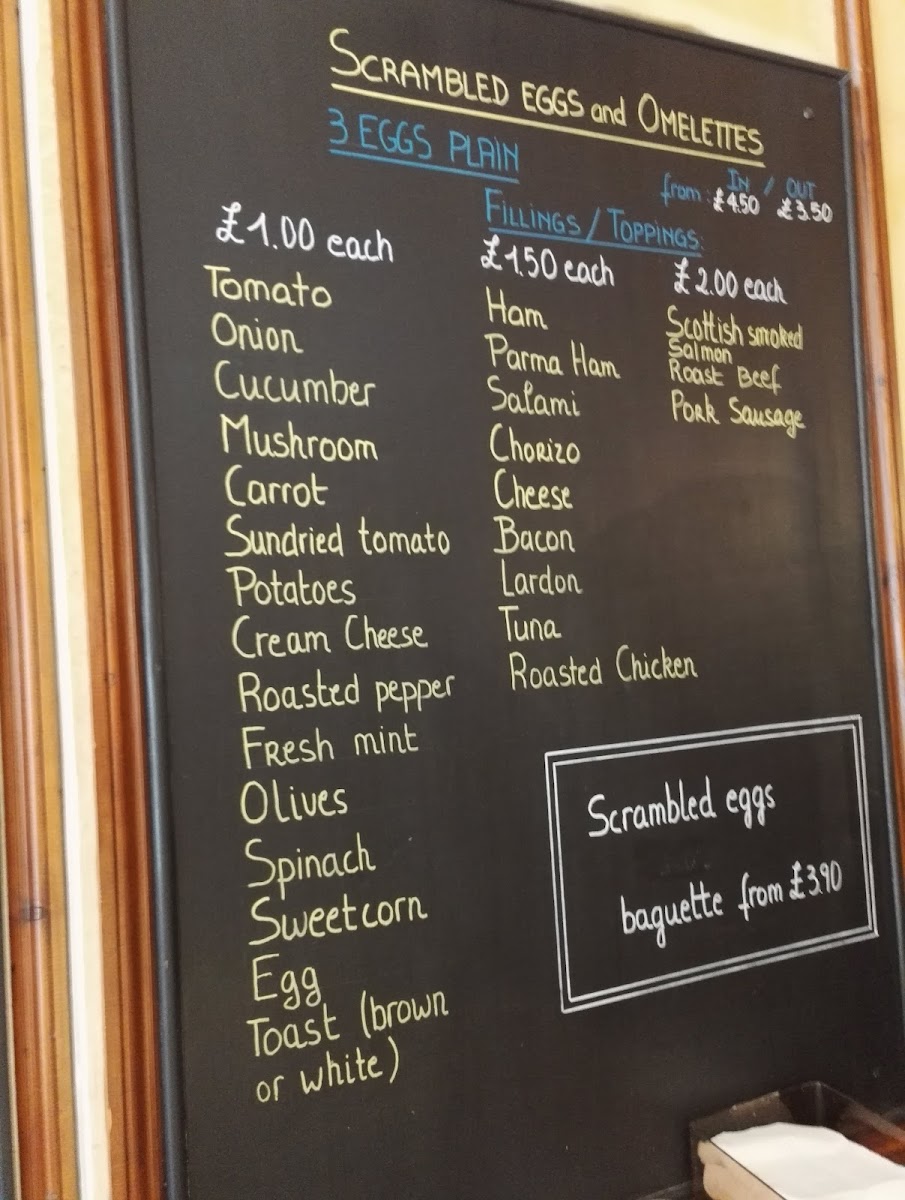 SCRAMBLED EGGS and OMELETTES
3 EGGS PLAIN
IN / OUT
from: £4.50 £3.50
FILLINGS / TOPPINGS:
£1.00 each
Tomato
Onion
Cucumber
Mushroom
Carrot
Sundried tomato
Potatoes
Cream Cheese
Roasted pepper
Fresh mint
Olives
Spinach
Sweetcorn
Egg
Toast (brown
or white)
£1.50 each
Ham
Parma Ham
Salami
Chorizo
Cheese
Bacon
Lardon
Tuna
Roasted Chicken
£2.00 each
Scottish smoked
Salmon
Roast Beef
Pork Sausage
Scrambled eggs
baguette from £3.90